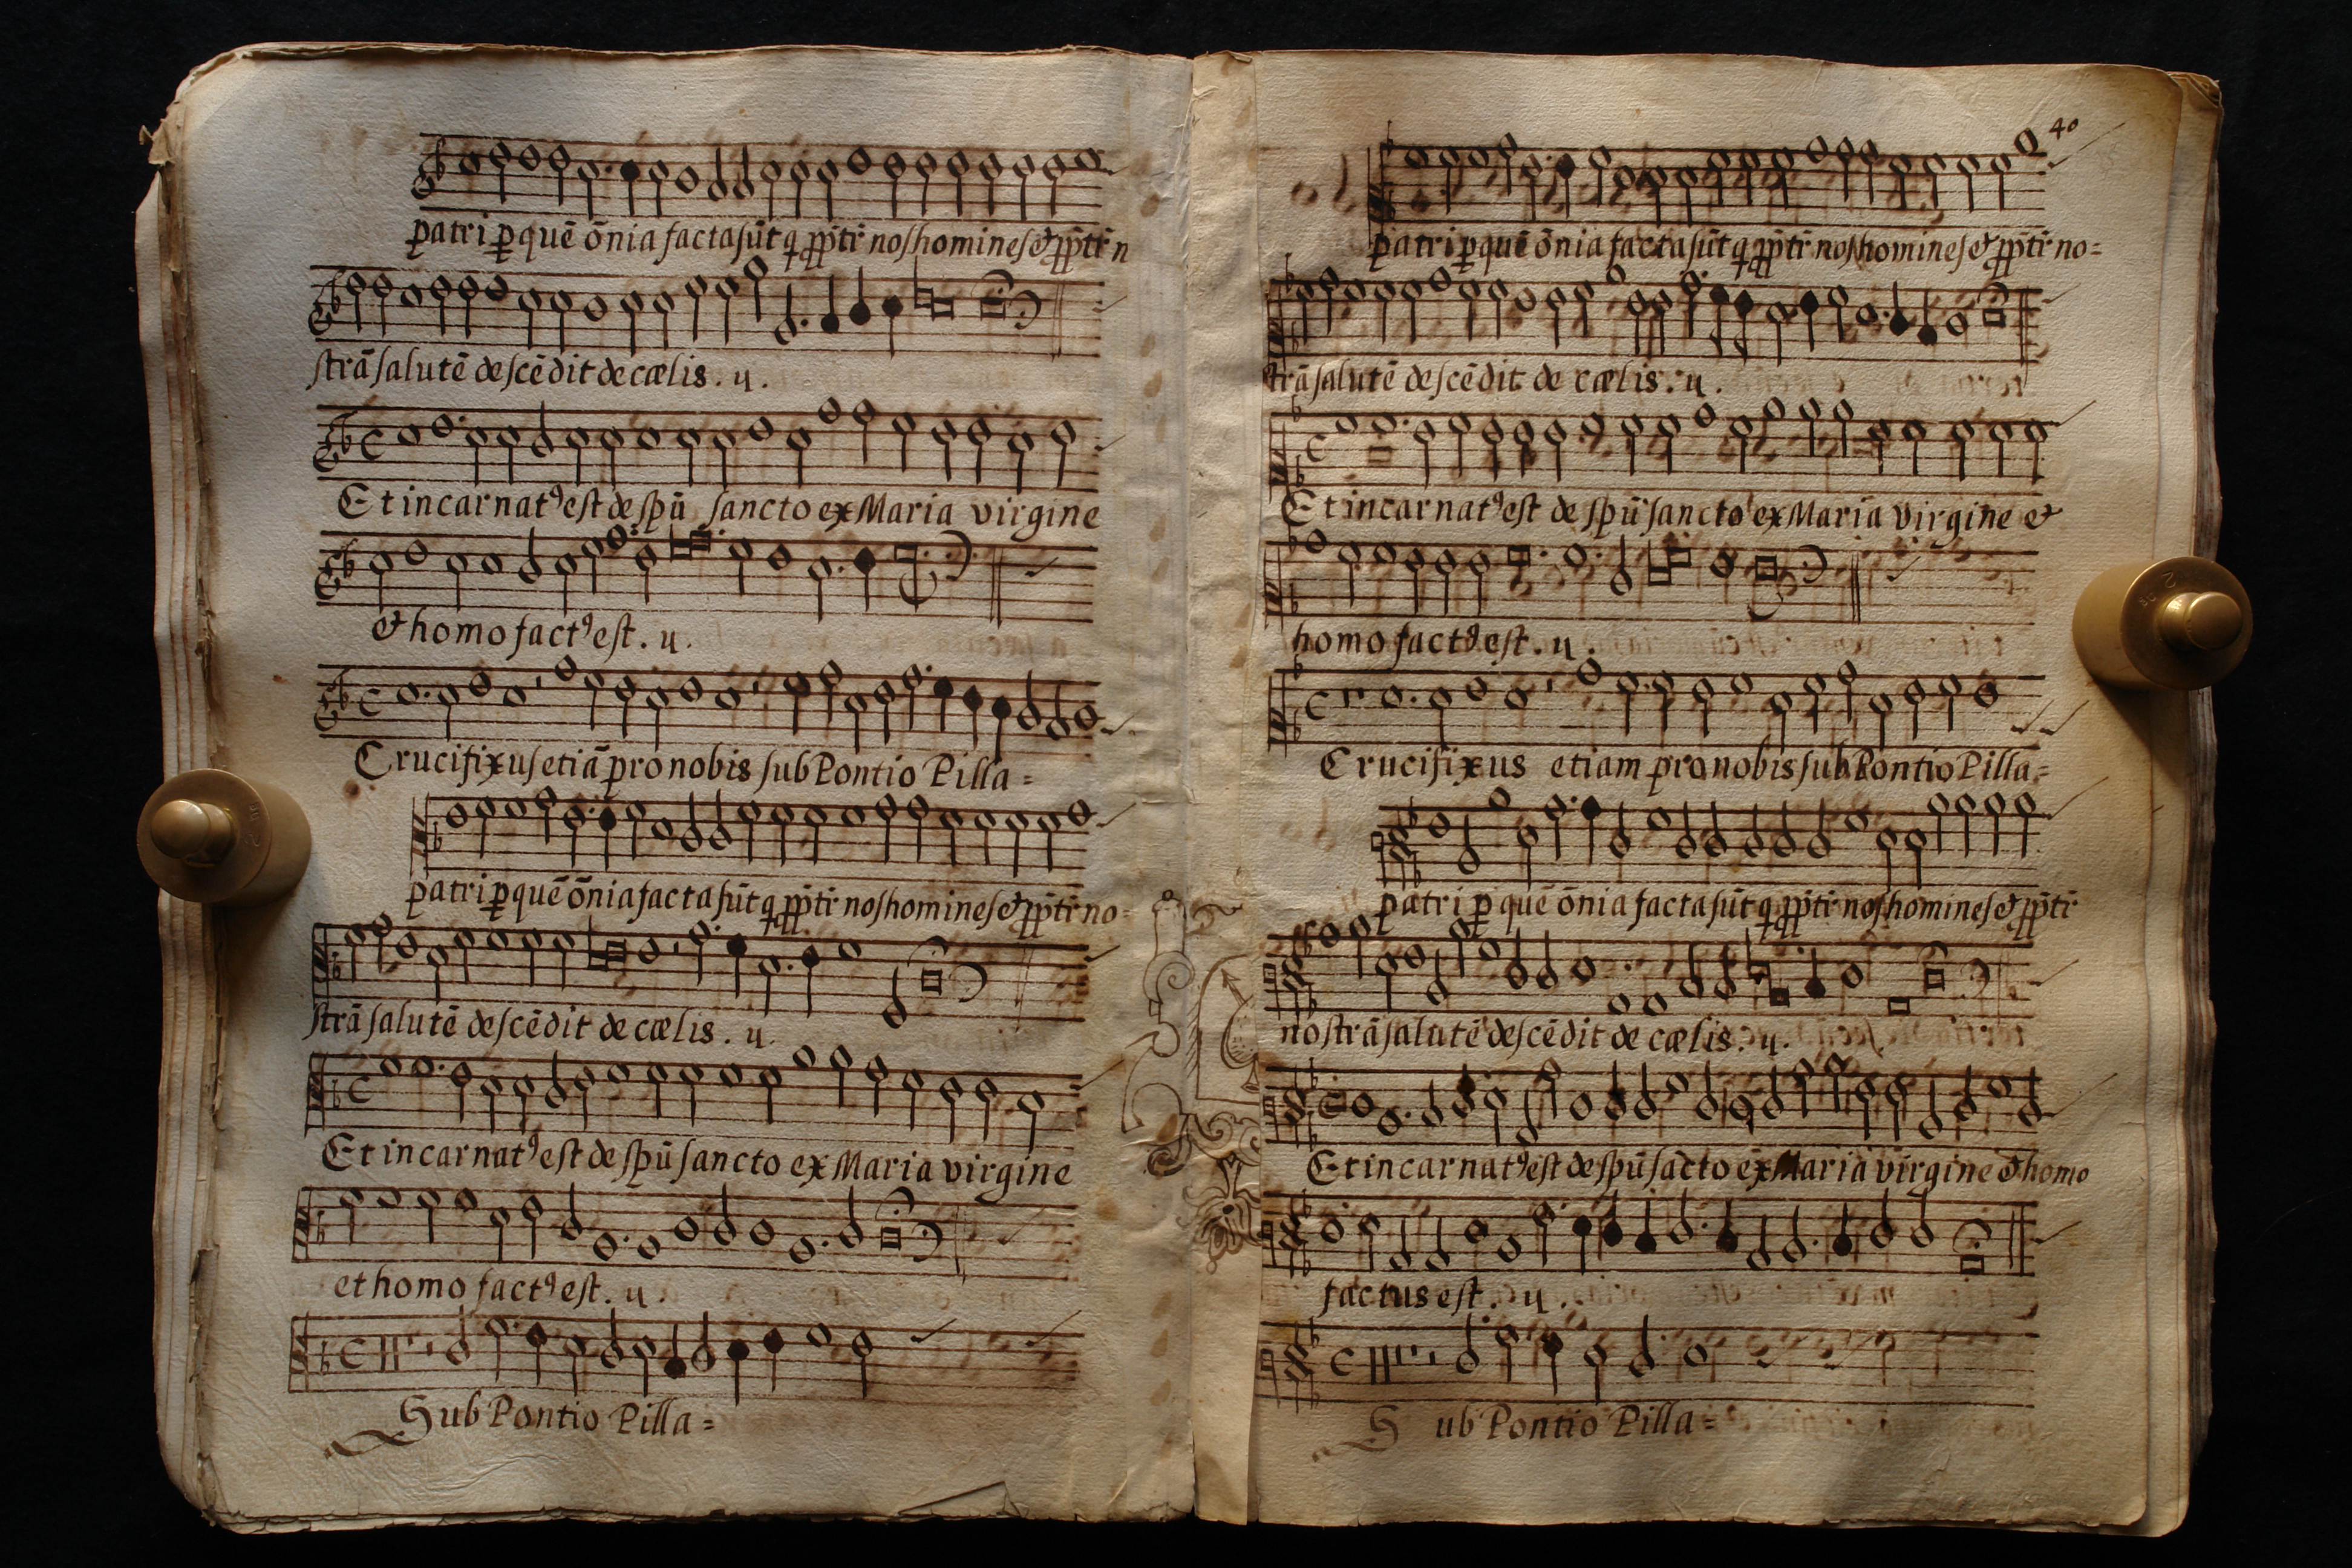 patri p̲ quē ōnia facta sūt q pp̄tr̄ nos homines & pp̄tr̄ n
strā salutē descēdit de cælis . ij .
Et incarnatꝰ est de spū sancto ex Maria virgine
& homo factꝰ est . ij .
Crucifixus etiā pro nobis sub Pontio Pilla=
patri p̲ quē ōnia facta sūt q pp̄tr̄ nos homines & pp̄tr̄ no=
strā salutē descēdit de cælis . ij .
Et incarnatꝰ est de spū sancto ex Maria virgine
et homo factꝰ est . ij .
Sub Pontio Pilla=
40
patri p̲ quē ōnia facta sūt q pp̄tr̄ nos homines & pp̄tr̄ no=
strā salutē descēdit de cælis . ij .
Et incarnatꝰ est de spū sancto ex Maria virgine &
homo factꝰ est . ij .
Crucifixus etiam pro nobis sub Pontio Pilla=
patri p̲ quē ōnia facta sūt q pp̄tr̄ nos homines & pp̄tr̄
nostrā salutē descēdit de cælis . ij .
Et incarnatꝰ est de spū sācto ex Maria virgine & homo
factus est . ij .
Sub Pontio Pilla=